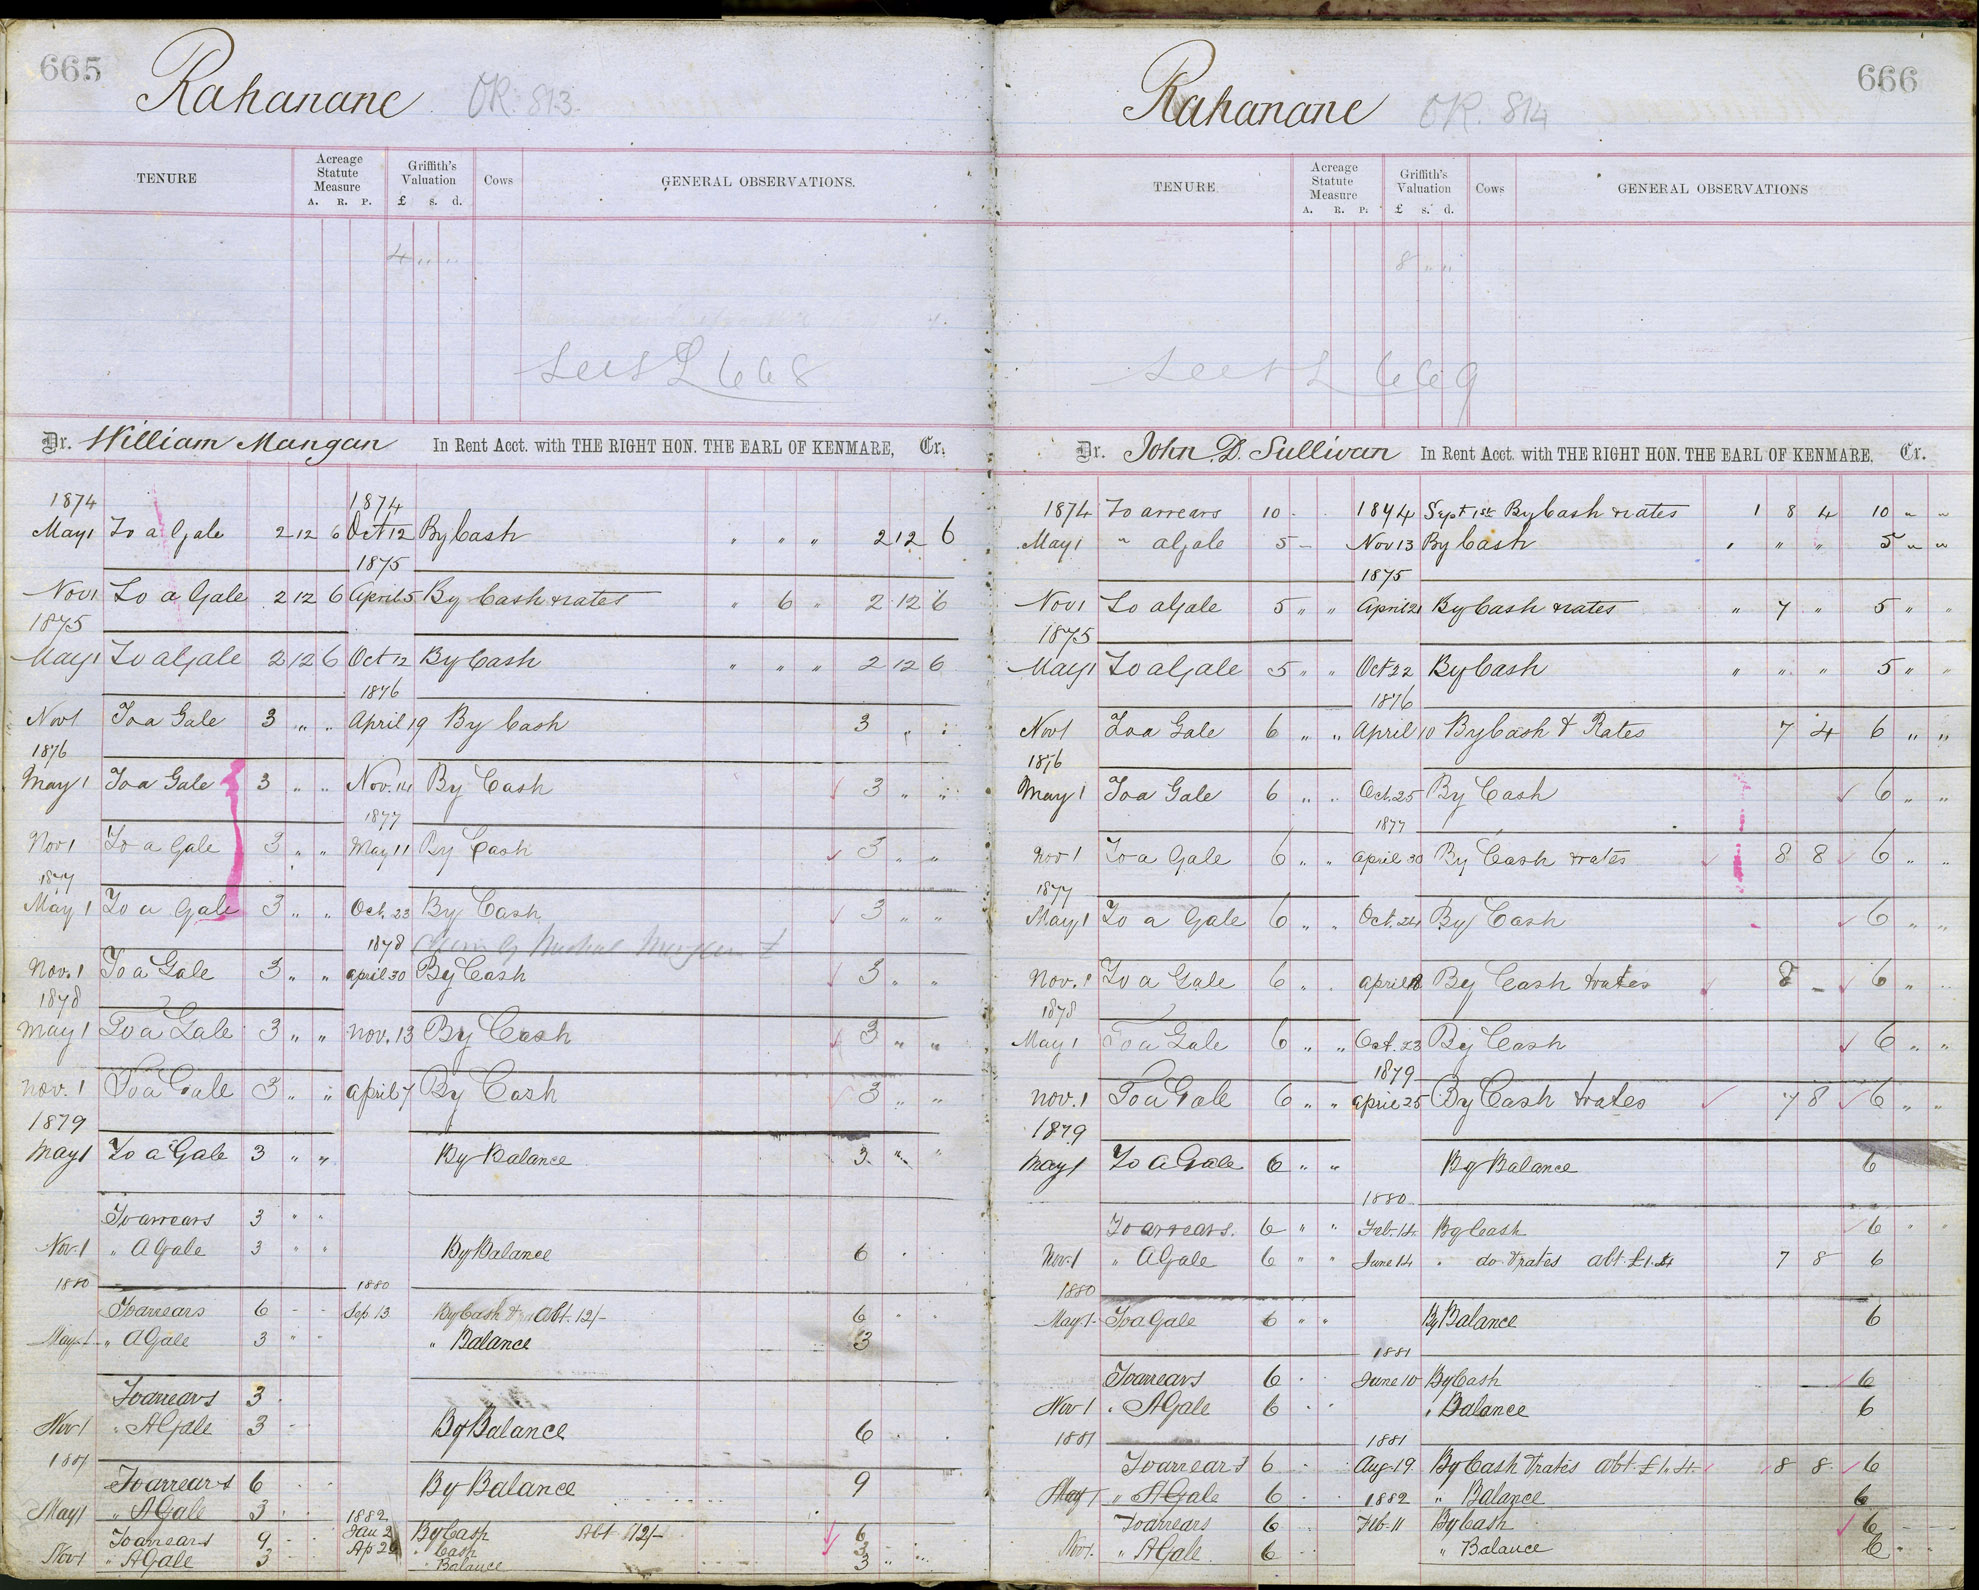 665
Rahanane OR. 813.
TENURE
Acreage Statute Measure
A. R. P.
Griffith's Valuation
£ s. d.
Cows
GENERAL OBSERVATIONS.
4 " "
See S L 668
Dr. William Mangan In Rent Acct. with THE RIGHT HON. THE EARL OF KENMARE, Cr.
1874 1874
May 1 To a Gale 2 12 6 Oct 12 By Cash " " " 2 12 6
1875
Nov 1 To a Gale 2 12 6 April 5 By Cash & rates " 6 " 2 12 6
1875
May 1 To a Gale 2 12 6 Oct 12 By Cash " " " 2 12 6
1876
Nov 1 To a Gale 3 " " April 19 By Cash 3 " "
1876
May 1 To a Gale 3 " " Nov. 14 By Cash 3 " "
1877
Nov 1 To a Gale 3 " " May 11 By Cash 3 " "
1877
May 1 To a Gale 3 " " Oct. 23 By Cash 3 " "
1878
Nov. 1 To a Gale 3 " " April 30 By Cash 3 " "
1878
May 1 To a Gale 3 " " Nov. 13 By Cash 3 " "
Nov. 1 To a Gale 3 " " April 7 By Cash 3 " "
1879
May 1 To a Gale 3 " " By Balance 3 " "
To arrears 3 " "
Nov. 1 " A Gale 3 " " By Balance 6
1880 1880
To arrears 6 - - Sep 13 By Cash & abt. 12/- 6
May 1 " A Gale 3 " " " Balance 3
To arrears 3
Nov 1 " A Gale 3 By Balance 6
1881
To arrears 6 By Balance 9
May 1 " A Gale 3 1882
To arrears 9 Jan 2 By Cash Abt 12/- 6
Nov 1 " A Gale 3 Ap 26 " Cash 3
" Balance 3
666
Rahanane OR. 814
TENURE
Acreage Statute Measure
A. R. P.
Griffith's Valuation
£ s. d.
Cows
GENERAL OBSERVATIONS
8 " "
See S L 669
Dr. John D. Sullivan In Rent Acct. with THE RIGHT HON. THE EARL OF KENMARE, Cr.
1874 To arrears 10 - 1874 Sept 1st By Cash & rates 1 8 4 10 " "
May 1 " a Gale 5 - Nov 13 By Cash " " " 5 " "
1875
Nov 1 To a Gale 5 " " April 21 By Cash & rates " 7 " 5 " "
1875
May 1 To a Gale 5 " " Oct 22 By Cash " " " 5 " "
1876
Nov 1 To a Gale 6 " " April 10 By Cash & Rates 7 4 6 " "
1876
May 1 To a Gale 6 " " Oct. 25 By Cash 6 " "
1877
Nov 1 To a Gale 6 " " April 30 By Cash & rates 8 8 6 " "
1877
May 1 To a Gale 6 " " Oct. 24 By Cash 6 " "
Nov. 1 To a Gale 6 " " April By Cash & rates 8 - 6 "
1878
May 1 To a Gale 6 " " Oct. 23 By Cash 6 " "
1879
Nov. 1 To a Gale 6 " " April 25 By Cash & rates 7 8 6 " "
1879
May 1 To a Gale 6 " " By Balance 6
1880
To arrears. 6 " " Feb. 14 By Cash 6 " "
Nov. 1 " A Gale 6 " " June 14 " do & rates abt. £1.4 7 8 6
1880
May 1. To a Gale 6 " " By Balance 6
1881
To arrears 6 June 10 By Cash 6
Nov 1 " A Gale 6 " Balance 6
1881 1881
To arrears 6 Aug. 19 By Cash & rates abt. £1.4. 8 8 6
May 1 " A Gale 6 1882 " Balance 6
To arrears 6 Feb. 11 By Cash 6
Nov 1. " A Gale 6 " Balance 6